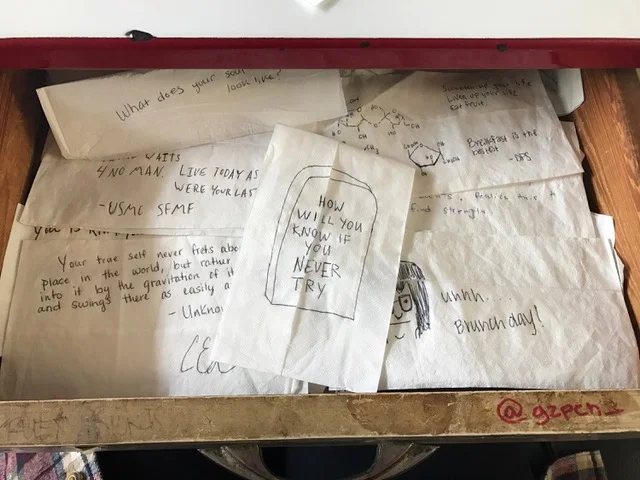 What does your soul
look like?
WAITS
4 NO MAN. LIVE TODAY AS
WERE YOUR LAST
- USMC SFMF
Your true self never frets abo
place in the world, but rather
into it by the gravitation of it
and swings there as easily a
- Unkno
HOW
WILL YOU
KNOW IF
YOU
NEVER
TRY
your life
Liven up your life
eat fruit.
Breakfast is the
- DFS
find strength
uhhh.
Brunch day!
@gzpcn_